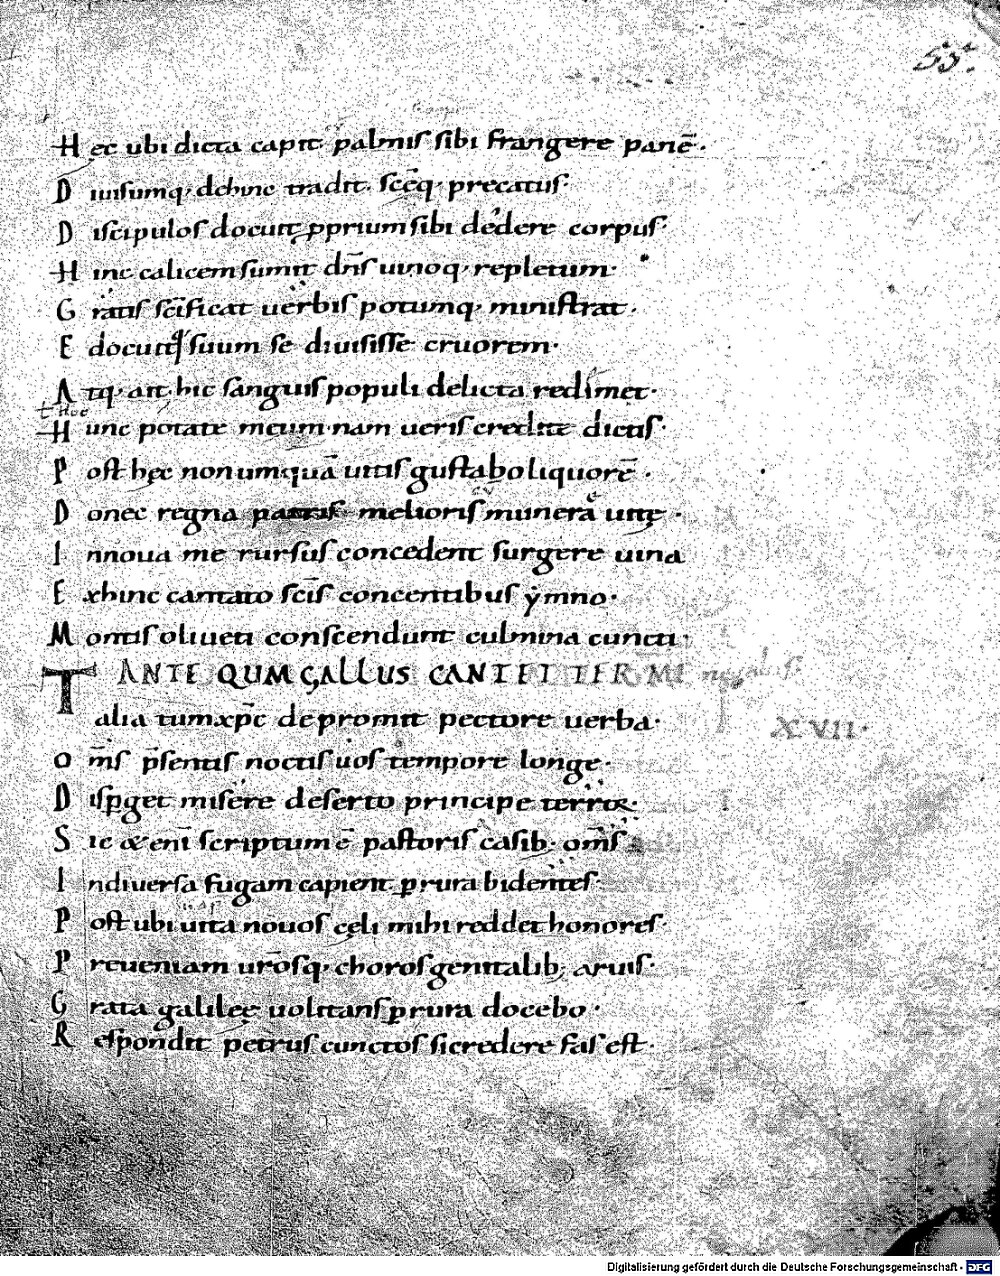 53.
Hęc ubi dicta capit palmis sibi frangere panē.
Diuisumq; dehinc tradit. scēq; precatus.
Discipulos docuit ꝓprium sibi dedere corpus.
Hinc calicem sumit dn̄s uinoq; repletum.
Gratis scīficat uerbis potumq; ministrat.
Edocuitq; suum se diuisisse cruorem.
Atq; ait hic sanguis populi delicta redimet.
ł hoc
Hunc potate meum. nam ueris credite dictis.
Post hęc non umquā uitis gustabo liquorē.
Donec regna patris melioris munera uitę.
Innoua me rursus concedent surgere uina
Exhinc cantato scīs concentibus ẏmno.
Montis oliueti conscendunt culmina cuncti.
ANTE QUM GALLUS CANTET TER ME negabis.
Talia tum xp̄c depromit pectore uerba.
XVII.
Om̄s p̄sentis noctis uos tempore longe.
Disꝑget misere deserto principe terror.
Sic &enī scriptum ē pastoris casib; om̄s
Indiuersa fugam capient ꝑrura bidentes.
Post ubi uita nouos cęli mihi reddet honores.
Preueniam ur̄osq; choros genitalib; aruis.
Grata galileę uolitans ꝑrura docebo.
Respondit petrus cunctos sicredere fas est.
Digitalisierung gefördert durch die Deutsche Forschungsgemeinschaft - DFG